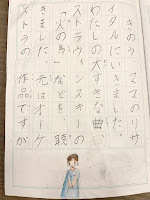 きのう、ママのリサ
イタルにいきました。
わたしの大すきな曲、
ストラヴィンスキーの
「火の鳥」なども、聴
きました。元はオーケ
ストラの、作品ですが